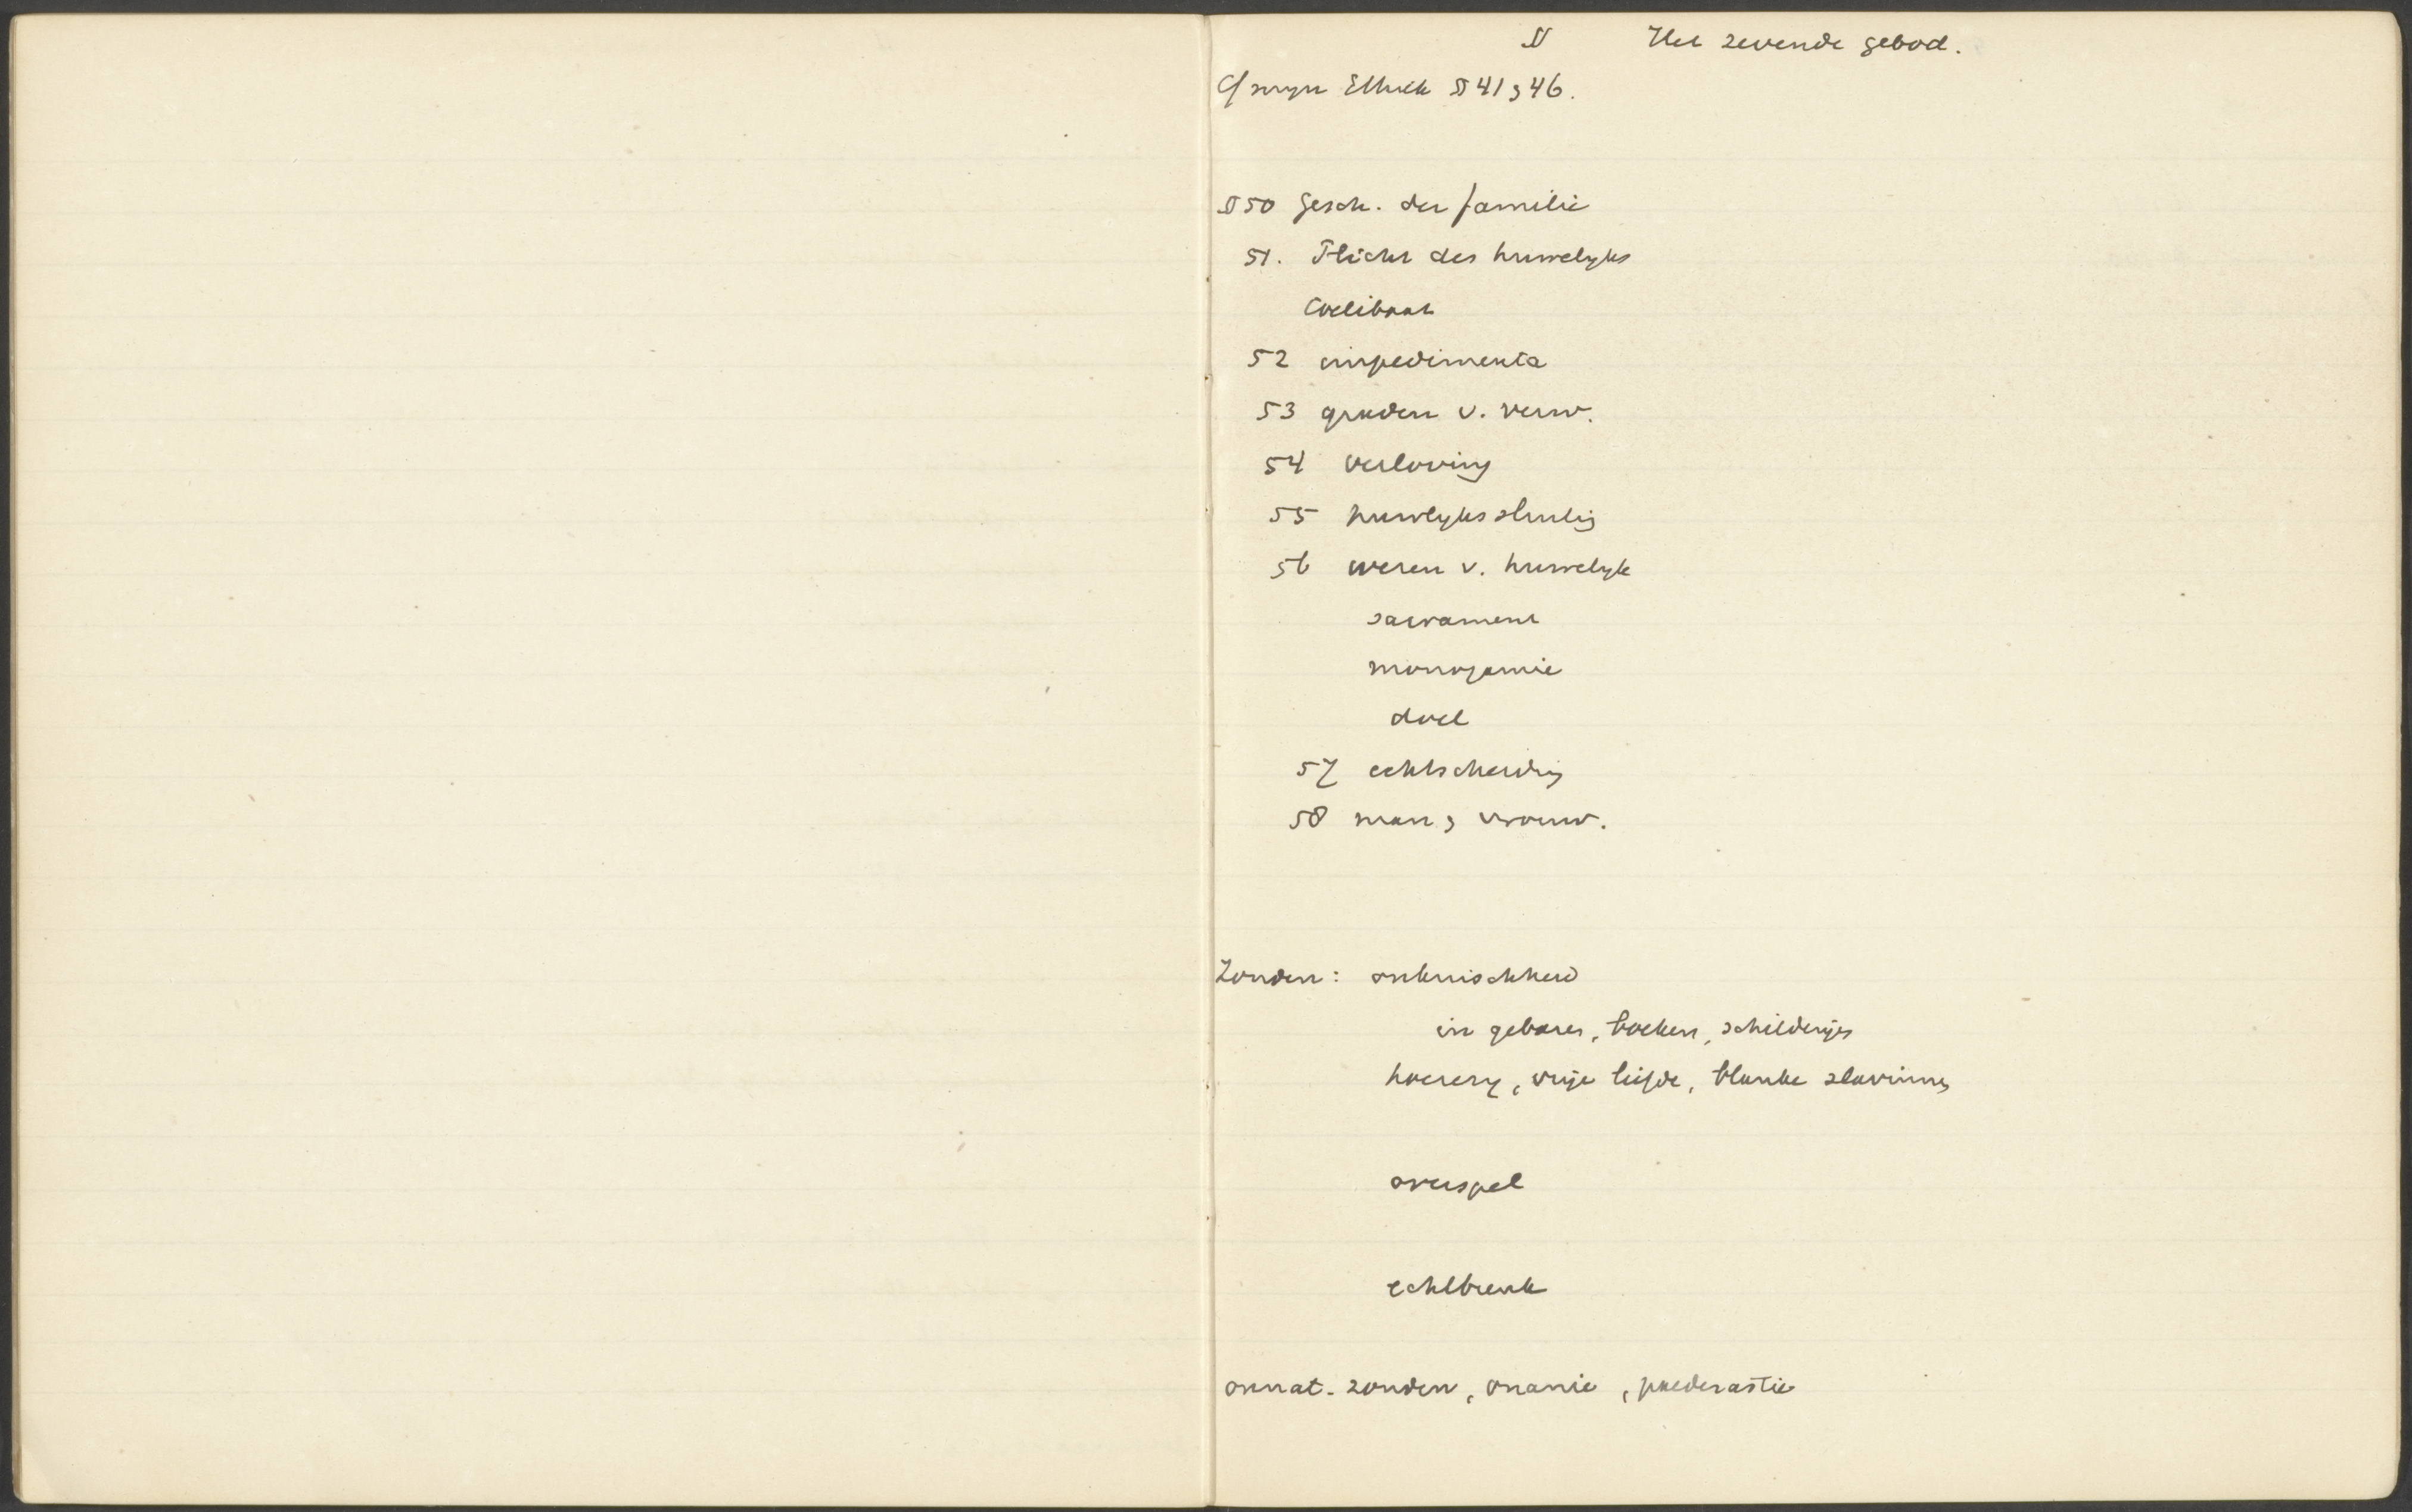 § Het zevende gebod.
Cf mijn Ethiek § 41 & 46.
§ 50 Gesch. der familie
51. Plicht des huwelyks
Coelibaat
52 impedimenta
53 graden v. verw.
54 verloving
55 huwlyks sluitig
56 wezen v. huwelyk
sacrament
monogamie
doel
57 echtscheidig
58 man & vrouw.
Zonden: onkuischheid
in gebaren, boeken, schilderijen
hoerery, vrije liefde, blanke slavinnen
overspel
echtbreuk
onnat. zonden, onanie, paederastie